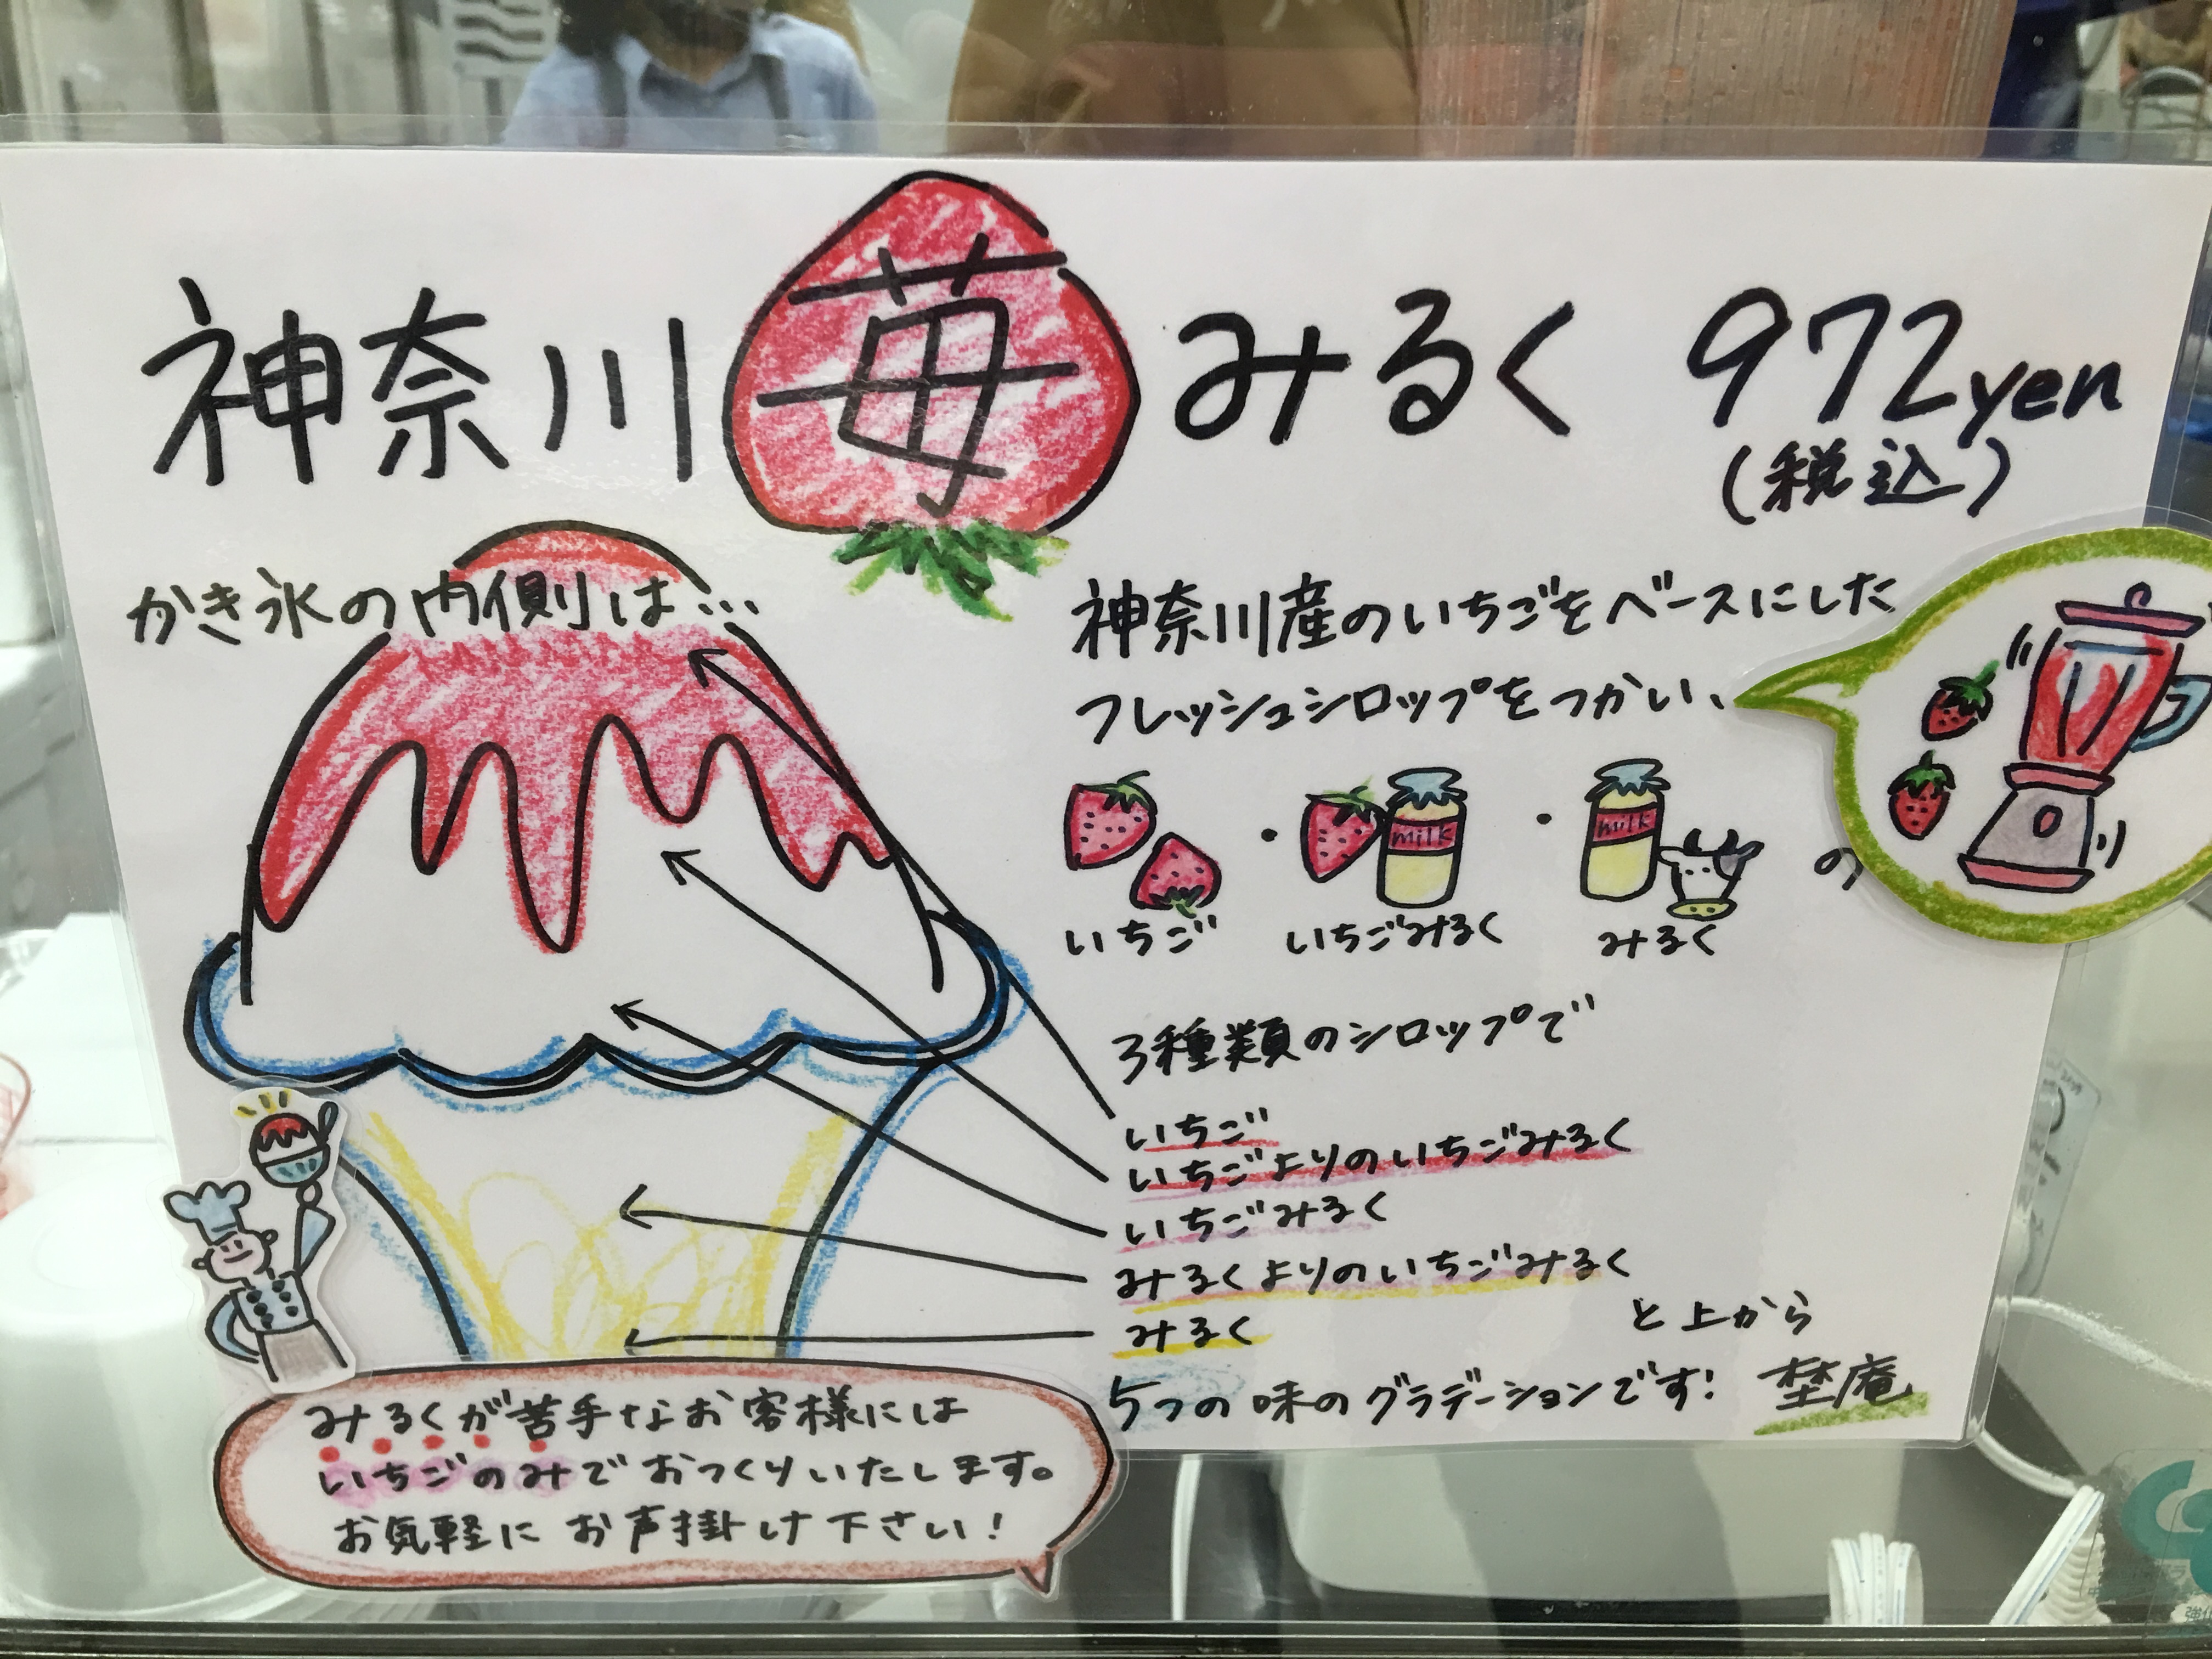 神奈川苺みるく 972yen
(税込)
かき氷の内側は…
神奈川産のいちごをベースにした
フレッシュシロップをつかい、
milk
milk
の
いちご ・ いちごみるく ・ みるく
3種類のシロップで
いちご
いちごよりのいちごみるく
いちごみるく
みるくよりのいちごみるく
みるく
と上から
5つの味のグラデーションです! 埜庵
みるくが苦手なお客様には
いちごのみでおつくりいたします。
お気軽にお声掛け下さい!